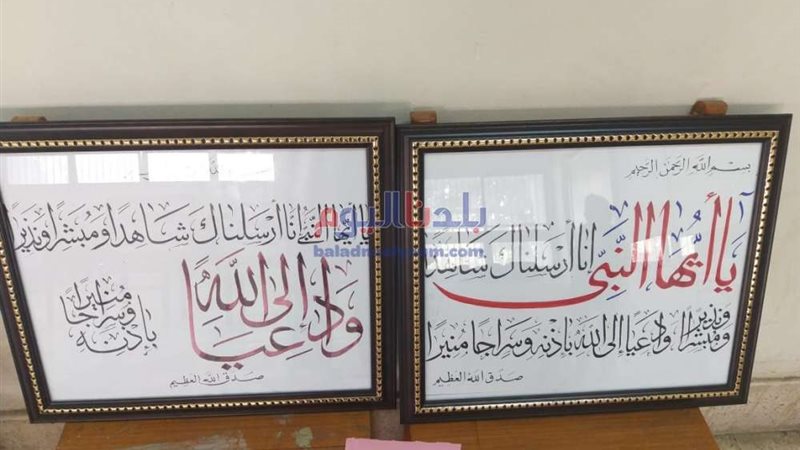 بسم الله الرحمن الرحيم
يا أيها النبي انا أرسلناك شاهدا
ومبشرا ونذيرا وداعيا إلى الله بإذنه وسراجا منيرا
صدق الله العظيم
يا ايها النبي انا أرسلناك شاهدا ومبشرا ونذيرا
وداعيا إلى الله
بإذنه
وسراجا
منيرا
صدق الله العظيم
بلدنا اليوم